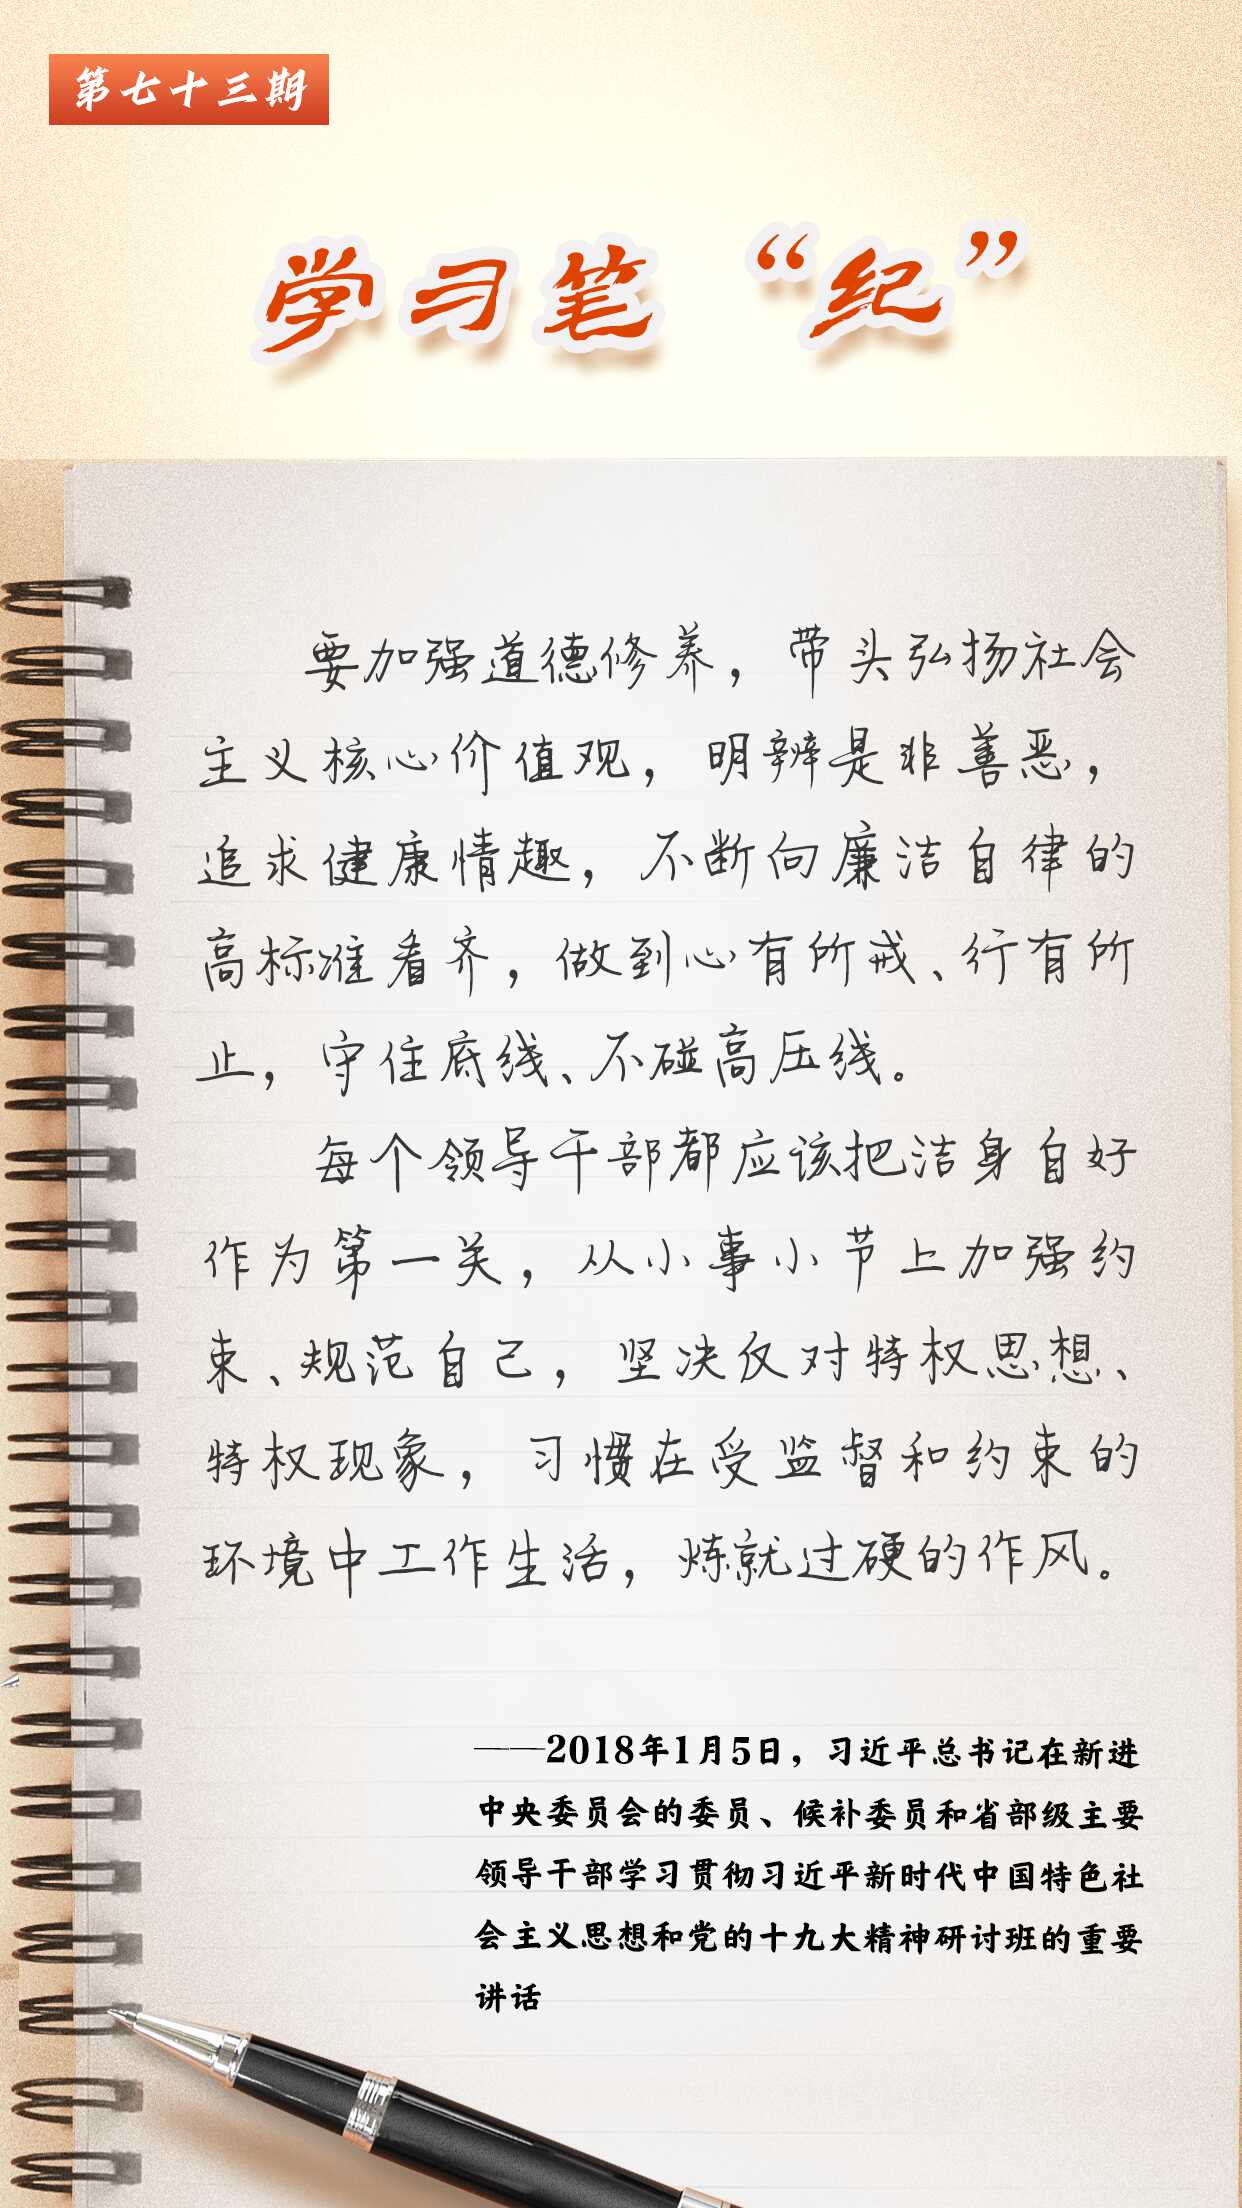 第七十三期
学习笔“纪”
要加强道德修养，带头弘扬社会
主义核心价值观，明辨是非善恶，
追求健康情趣，不断向廉洁自律的
高标准看齐，做到心有所戒、行有所
止，守住底线、不碰高压线。
每个领导干部都应该把洁身自好
作为第一关，从小事小节上加强约
束、规范自己，坚决仅对特权思想、
特权现象，习惯在受监督和约束的
环境中工作生活，炼就过硬的作风。
——2018年1月5日，习近平总书记在新进
中央委员会的委员、候补委员和省部级主要
领导干部学习贯彻习近平新时代中国特色社
会主义思想和党的十九大精神研讨班的重要
讲话